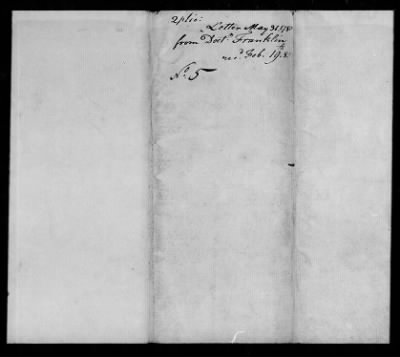 2plic:
Letter May 31 1780
from Doct.r Franklin
rec.d Feb. 19.
No. 5